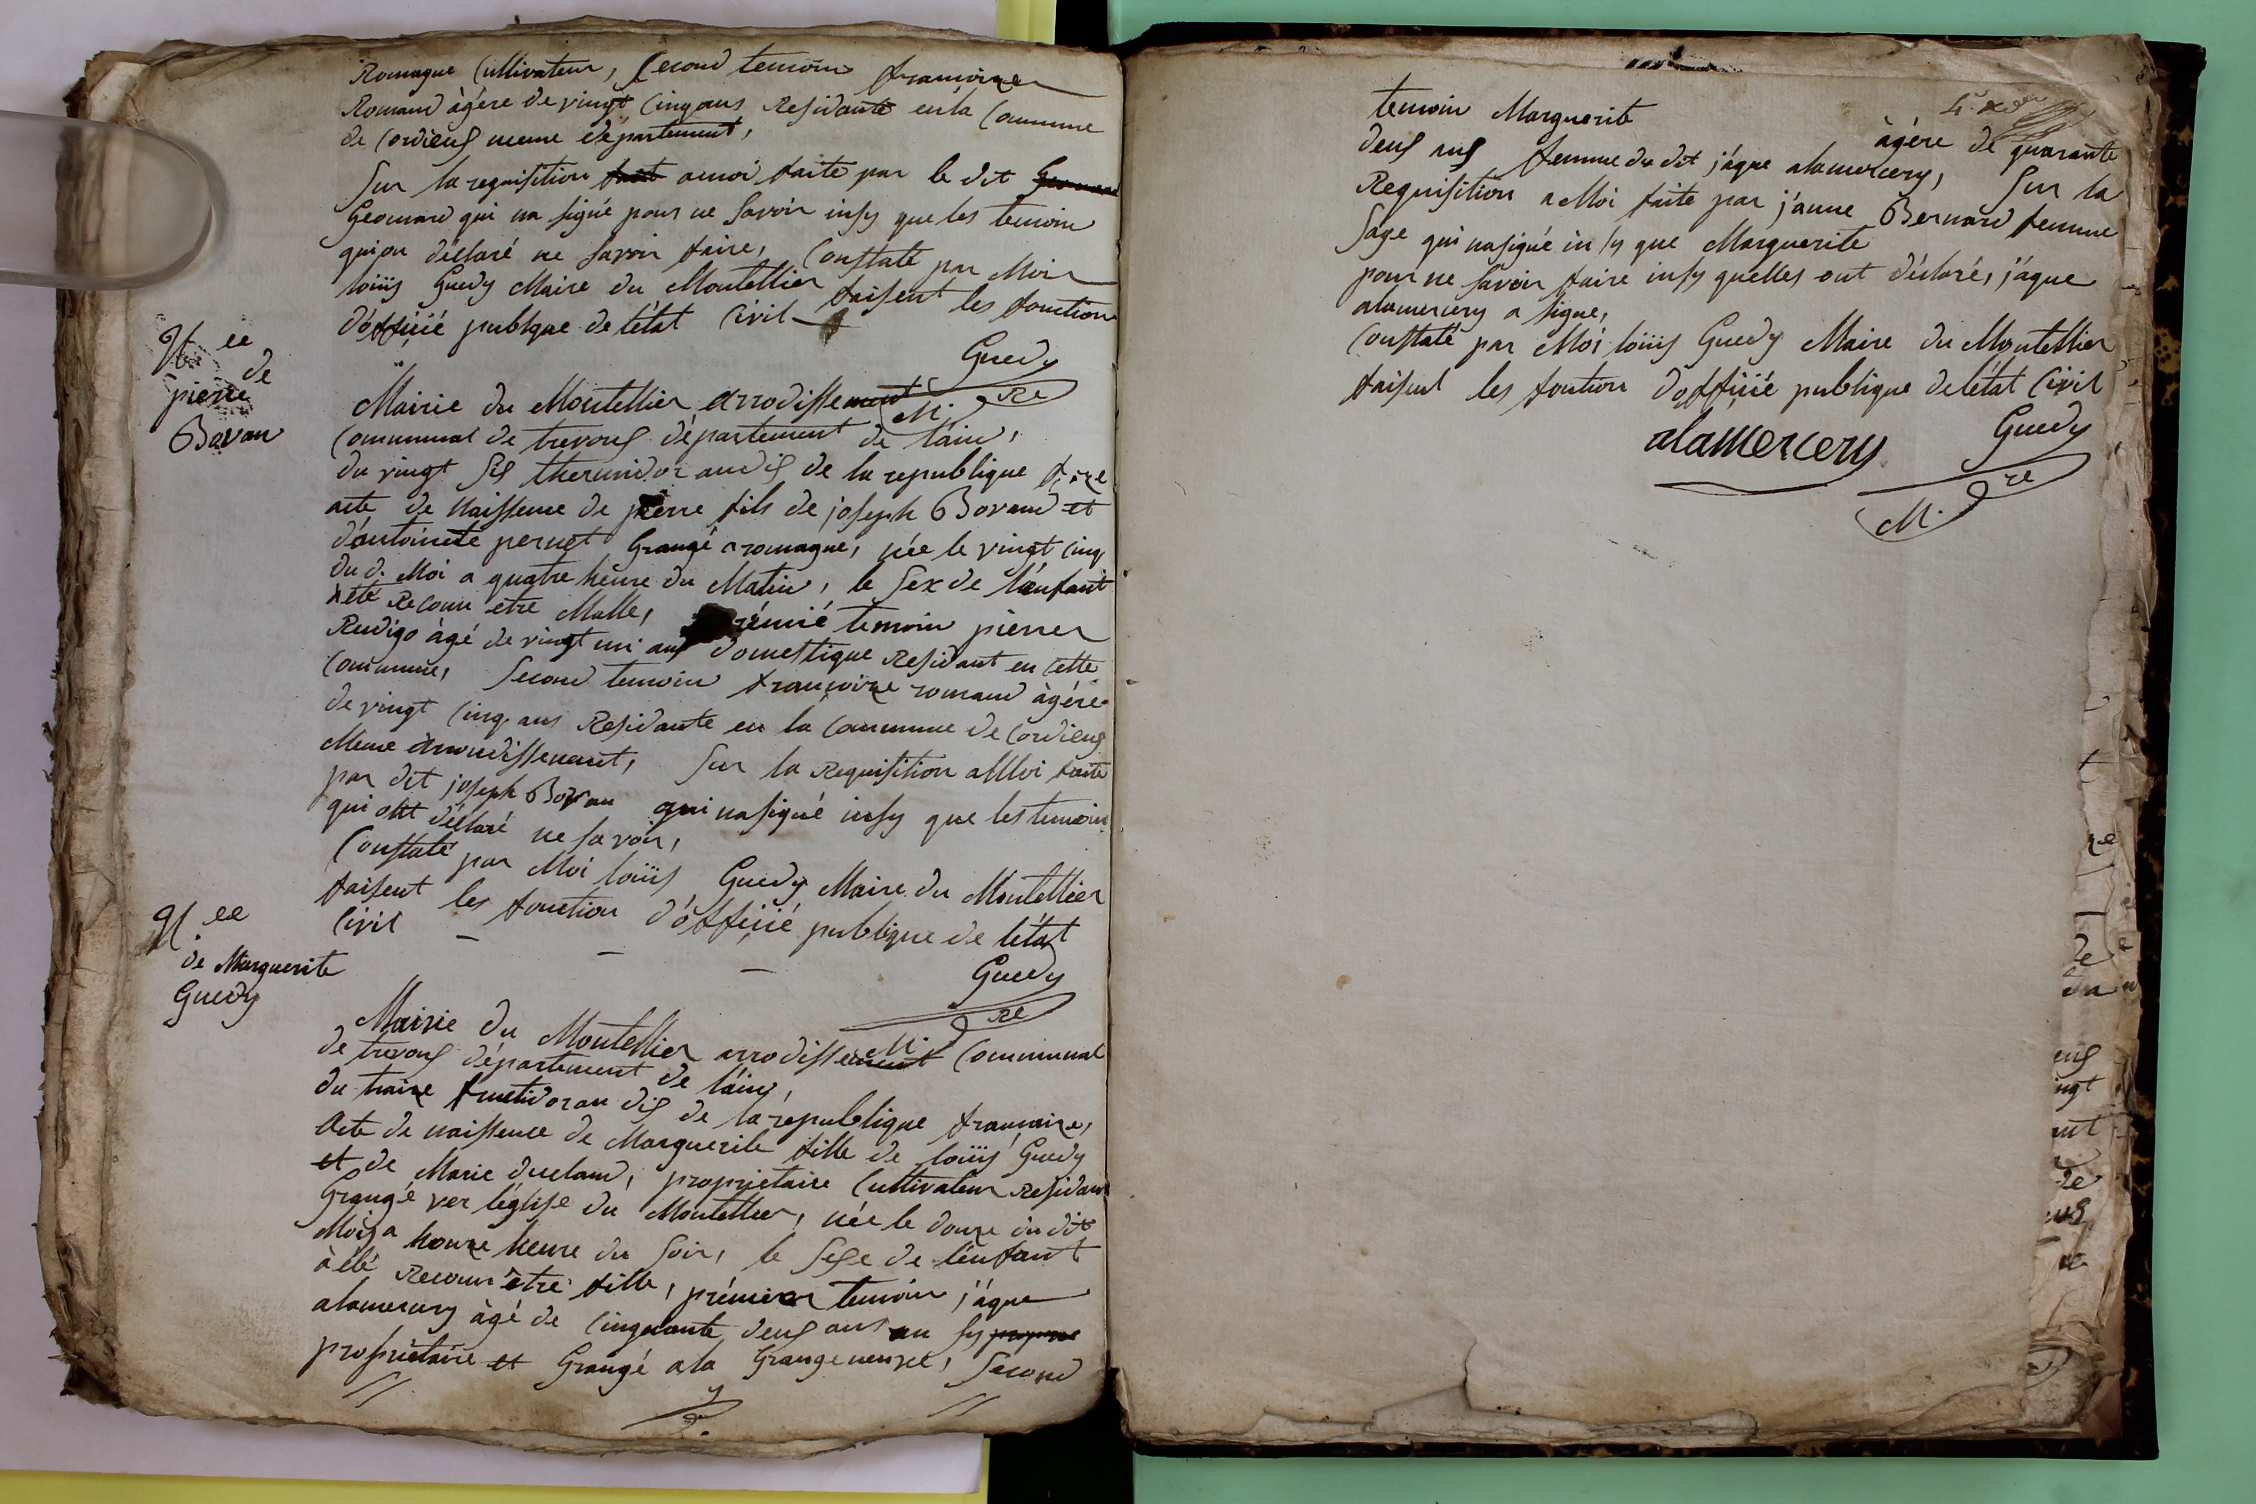 Romague Cultivateur, Second temoin francoize
Romand àgére de vingt Cinq ans Residante enla Commune
de Cordieuf meme departement,
Sur la requisition fait amoi faite par le dit
Geomard qui na signé pour ne Savoir insy que les temoin
quion déclaré ne Savoir faire, Constaté par Moi
loiiis Guedy Maire du Montellier faisent les fonction
d'óffiïié publque de létat Civil
Guedy
M. re
N ee
de
pierre
Bovan
Mairie du Montellier arrodissement
Communal de trevouf département de l'áin,
du vingt Sis thermidor an dis de la republique
acte de Naissense de pierre fils de joseph Bovand et
d'ántoinete pernet Grangé a romague, née le vingt Cinq
du d. Moi a quatre héure du Matin, le Sex de l'énfant
a été Reconu etre Malle, prémié temoin pierre
Rudigo àgé de vingt un ans domestique Residant en Cette
Commune, Second temoin françoize romand àgére
de vingt Cinq ans Residante en la Commune de Cordieuf
Meme arrondissement, Sur la Requisition a Moi faite
par dit joseph Bovan qui nasigné insy que les temoin
qui ont déclaré ne Savoir,
Constaté par Moi loiiis Guedy Maire du Montellier
faisent les fonction d'óffiïié publique de létat
Civil
Guedy
M. re
N ee
de Marguerite
Guedy
Mairie du Montellier arrodissement Communal
de trevouf département de l'áin,
du traize fructidor an dis de la république francaize,
Acte de naissence de Marguerite fille de loiiis Guedy
et de Marie duclaud, proprietaire Cultivateur Residant
Grangé ver léglise du Montellier, née le douze du dit
Mois a honze heure du Soir, le Sexe de lénfant
à été Reconu être fille, prémier temoin j'áque
alamercery àgé de Cinquante deus ans
propriétaire et Grangé a la Grange neuve, Second
temoin Marguerite àgére de quarante
deus ans femme du dit j'áque alamercery, Sur la
Requisition a Moi faite par j'anne Bernard femme
Sage qui nasigné insy que Marguerite
pour ne Savoir faire insy quelles ont déclaré, j'áque
alamercery a signe,
Constaté par Moi loiiis Guedy Maire du Montellier
faisent les fontion d'offiïié publique de létat Civil
alamercery Guedy
M. re